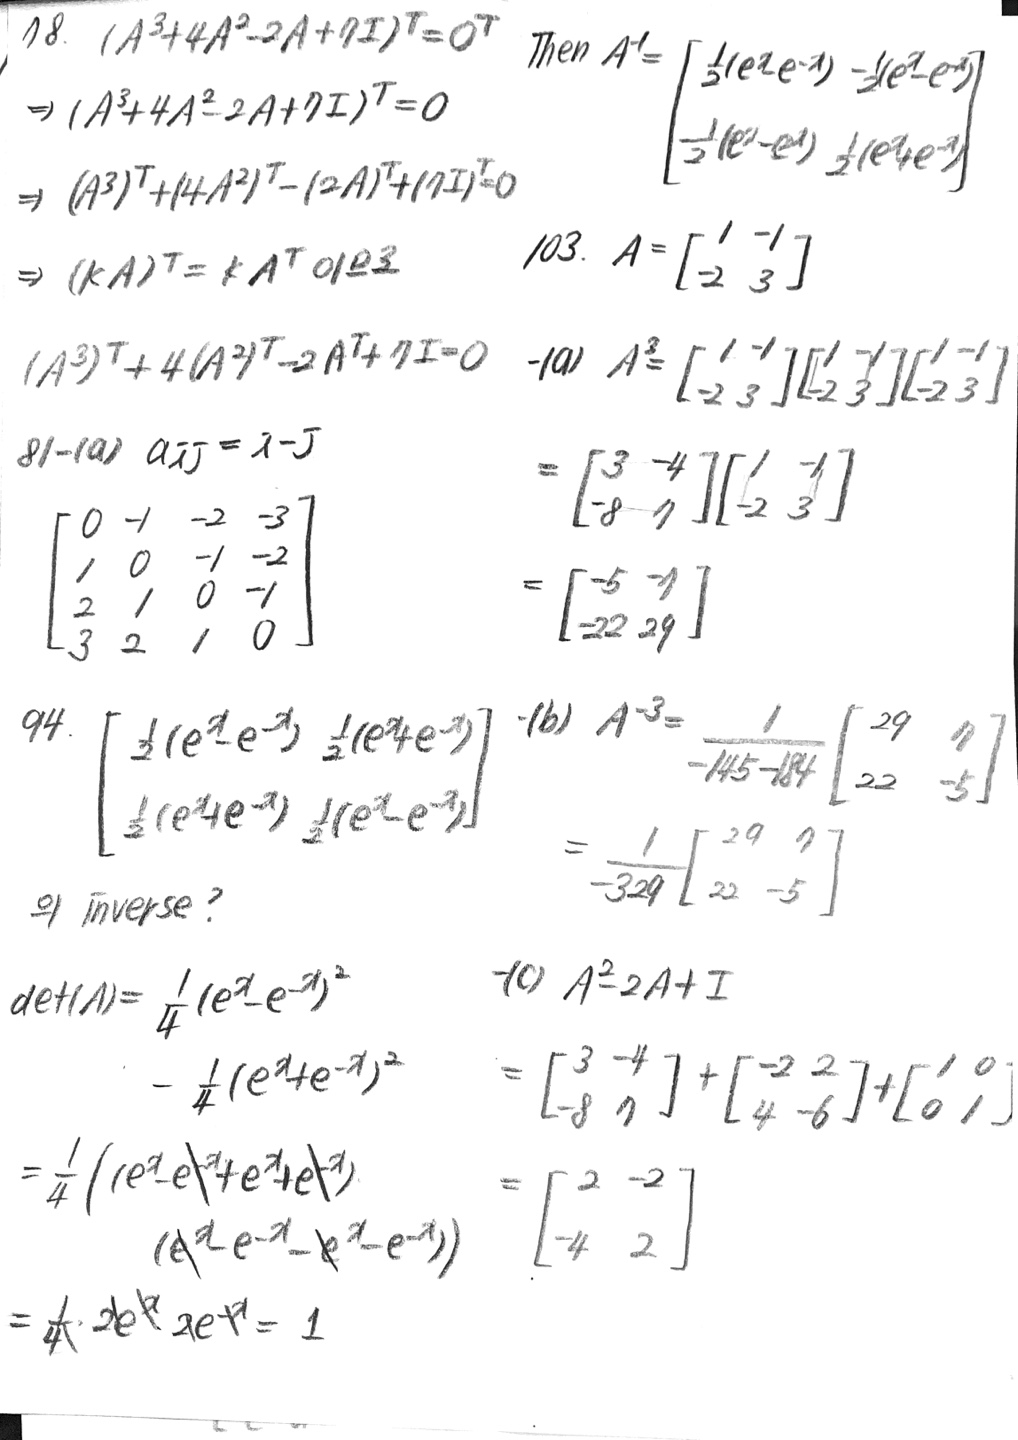 78. (A³+4A²-2A+7I)ᵀ=0ᵀ
⇒ (A³+4A²-2A+7I)ᵀ=0
⇒ (A³)ᵀ+(4A²)ᵀ-(2A)ᵀ+(7I)ᵀ=0
⇒ (kA)ᵀ = kAᵀ 이므로
(A³)ᵀ+4(A²)ᵀ-2Aᵀ+7I=0
81-(a) aij = i-j
[0 -1 -2 -3
1 0 -1 -2
2 1 0 -1
3 2 1 0]
94. [½(eˣ-e⁻ˣ) ½(eˣ+e⁻ˣ)
½(eˣ+e⁻ˣ) ½(eˣ-e⁻ˣ)]
의 inverse?
det(A)= ¼(eˣ-e⁻ˣ)²
- ¼(eˣ+e⁻ˣ)²
= ¼((eˣ-e⁻ˣ+eˣ+e⁻ˣ)
(eˣ-e⁻ˣ-eˣ-e⁻ˣ))
= ¼ · 2eˣ 2e⁻ˣ = 1
Then A⁻¹= [½(eˣ-e⁻ˣ) -½(eˣ-e⁻ˣ)
-½(eˣ-eˣ) ½(eˣ+e⁻ˣ)]
103. A = [1 -1
-2 3]
-(a) A³= [1 -1 ][1 -1 ][1 -1
-2 3 ][-2 3 ][-2 3]
= [3 -4 ][1 -1
-8 7 ][-2 3]
= [-5 -7
-22 29]
-(b) A⁻³= 1/(-145-184) [29 7
22 -5]
= 1/-329 [29 7
22 -5]
-(c) A²-2A+I
= [3 -4 ] + [-2 2 ] + [1 0
-8 7 ] [4 -6 ] [0 1]
= [2 -2
-4 2]